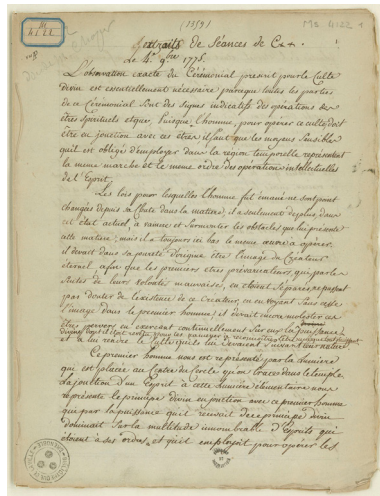 Ms 4122 1
M
4122
(1359)
extraits de Séances de C++.
Le 4. 9bre 1775.
L'observation exacte du Cérémonial prescrit pour le Culte
divin est essentiellement nécessaire puisque toutes les parties
de ce Cérémonial sont des signes indicatifs des opérations des
etres Spirituels et que, lorsque L'homme, pour opérer ce culte doit
etre en jonction avec ces etres, il faut que les moyens Sensibles
qu'il est obligé d'employer dans la région temporelle représentent
la meme marche et le meme ordre des opérations intellectuelles
de l'Esprit.
Les lois pour lesquelles l'homme fut émané ne sont point
changées depuis sa chute dans la matiere, il a seulement de plus dans
cet état actuel, à vaincre et surmonter les obstacles que lui présente
cette matiere; mais il a toujours ici bas le meme œuvre à opérer.
il devait dans sa pureté d'origine etre l'image du Créateur
éternel, afin que les premiers etres prévaricateurs, qui par les
suites de leurs volontés mauvaises, en étaient Séparés ne pussent
pas douter de l'existence de ce Créateur, en en voyant sans cesse
l'image dans le premier homme; et devait encore molester ces
etres pervers en exercant continuellement Sur eux la puissance
et à lui rendre le culte qu'ils lui devaient suivant leur nature.
Ce premier homme nous est représenté par la lumiere
qui est placée au Centre du cercle qu'on trace dans le temple.
La jonction d'un Esprit à cette lumiere élémentaire nous
représente le principe divin en jonction avec ce premier homme
qui par la puissance qu'il recevait de ce principe divin
dominait Sur la multitude innombrable d'Esprits qui
étaient à ses ordres et qu'il employait pour opérer les